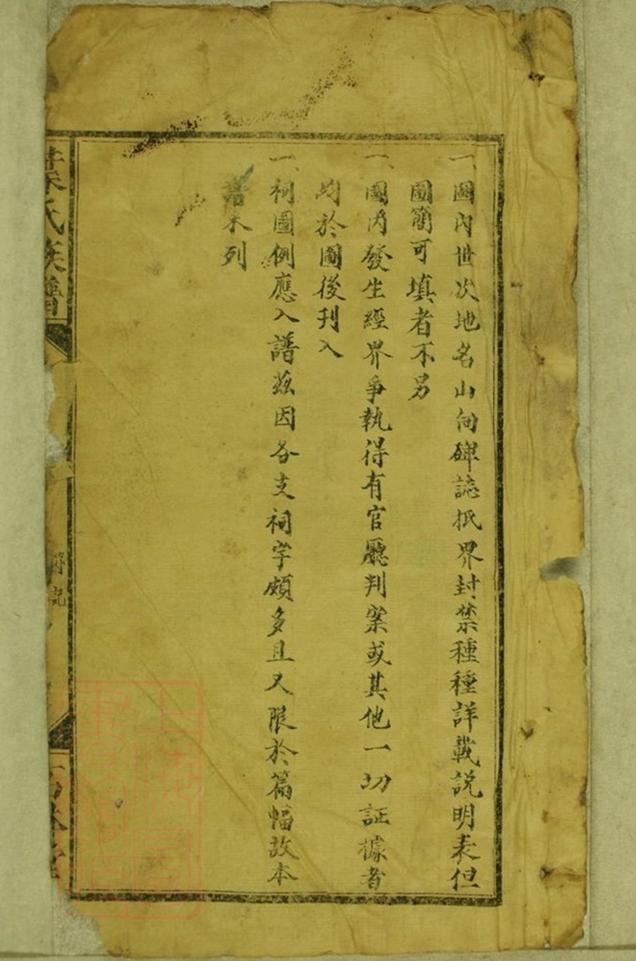 一圖內世次地名山向碑誌抵界封禁種種詳載說明表但
圖簡可填者不另
一圖內發生經界爭執得有官廳判案或其他一切証據者
均於圖後刊入
一祠圖例應入譜茲因各支祠宇頗多且又限於篇幅故本
譜不列
氏族譜
附說